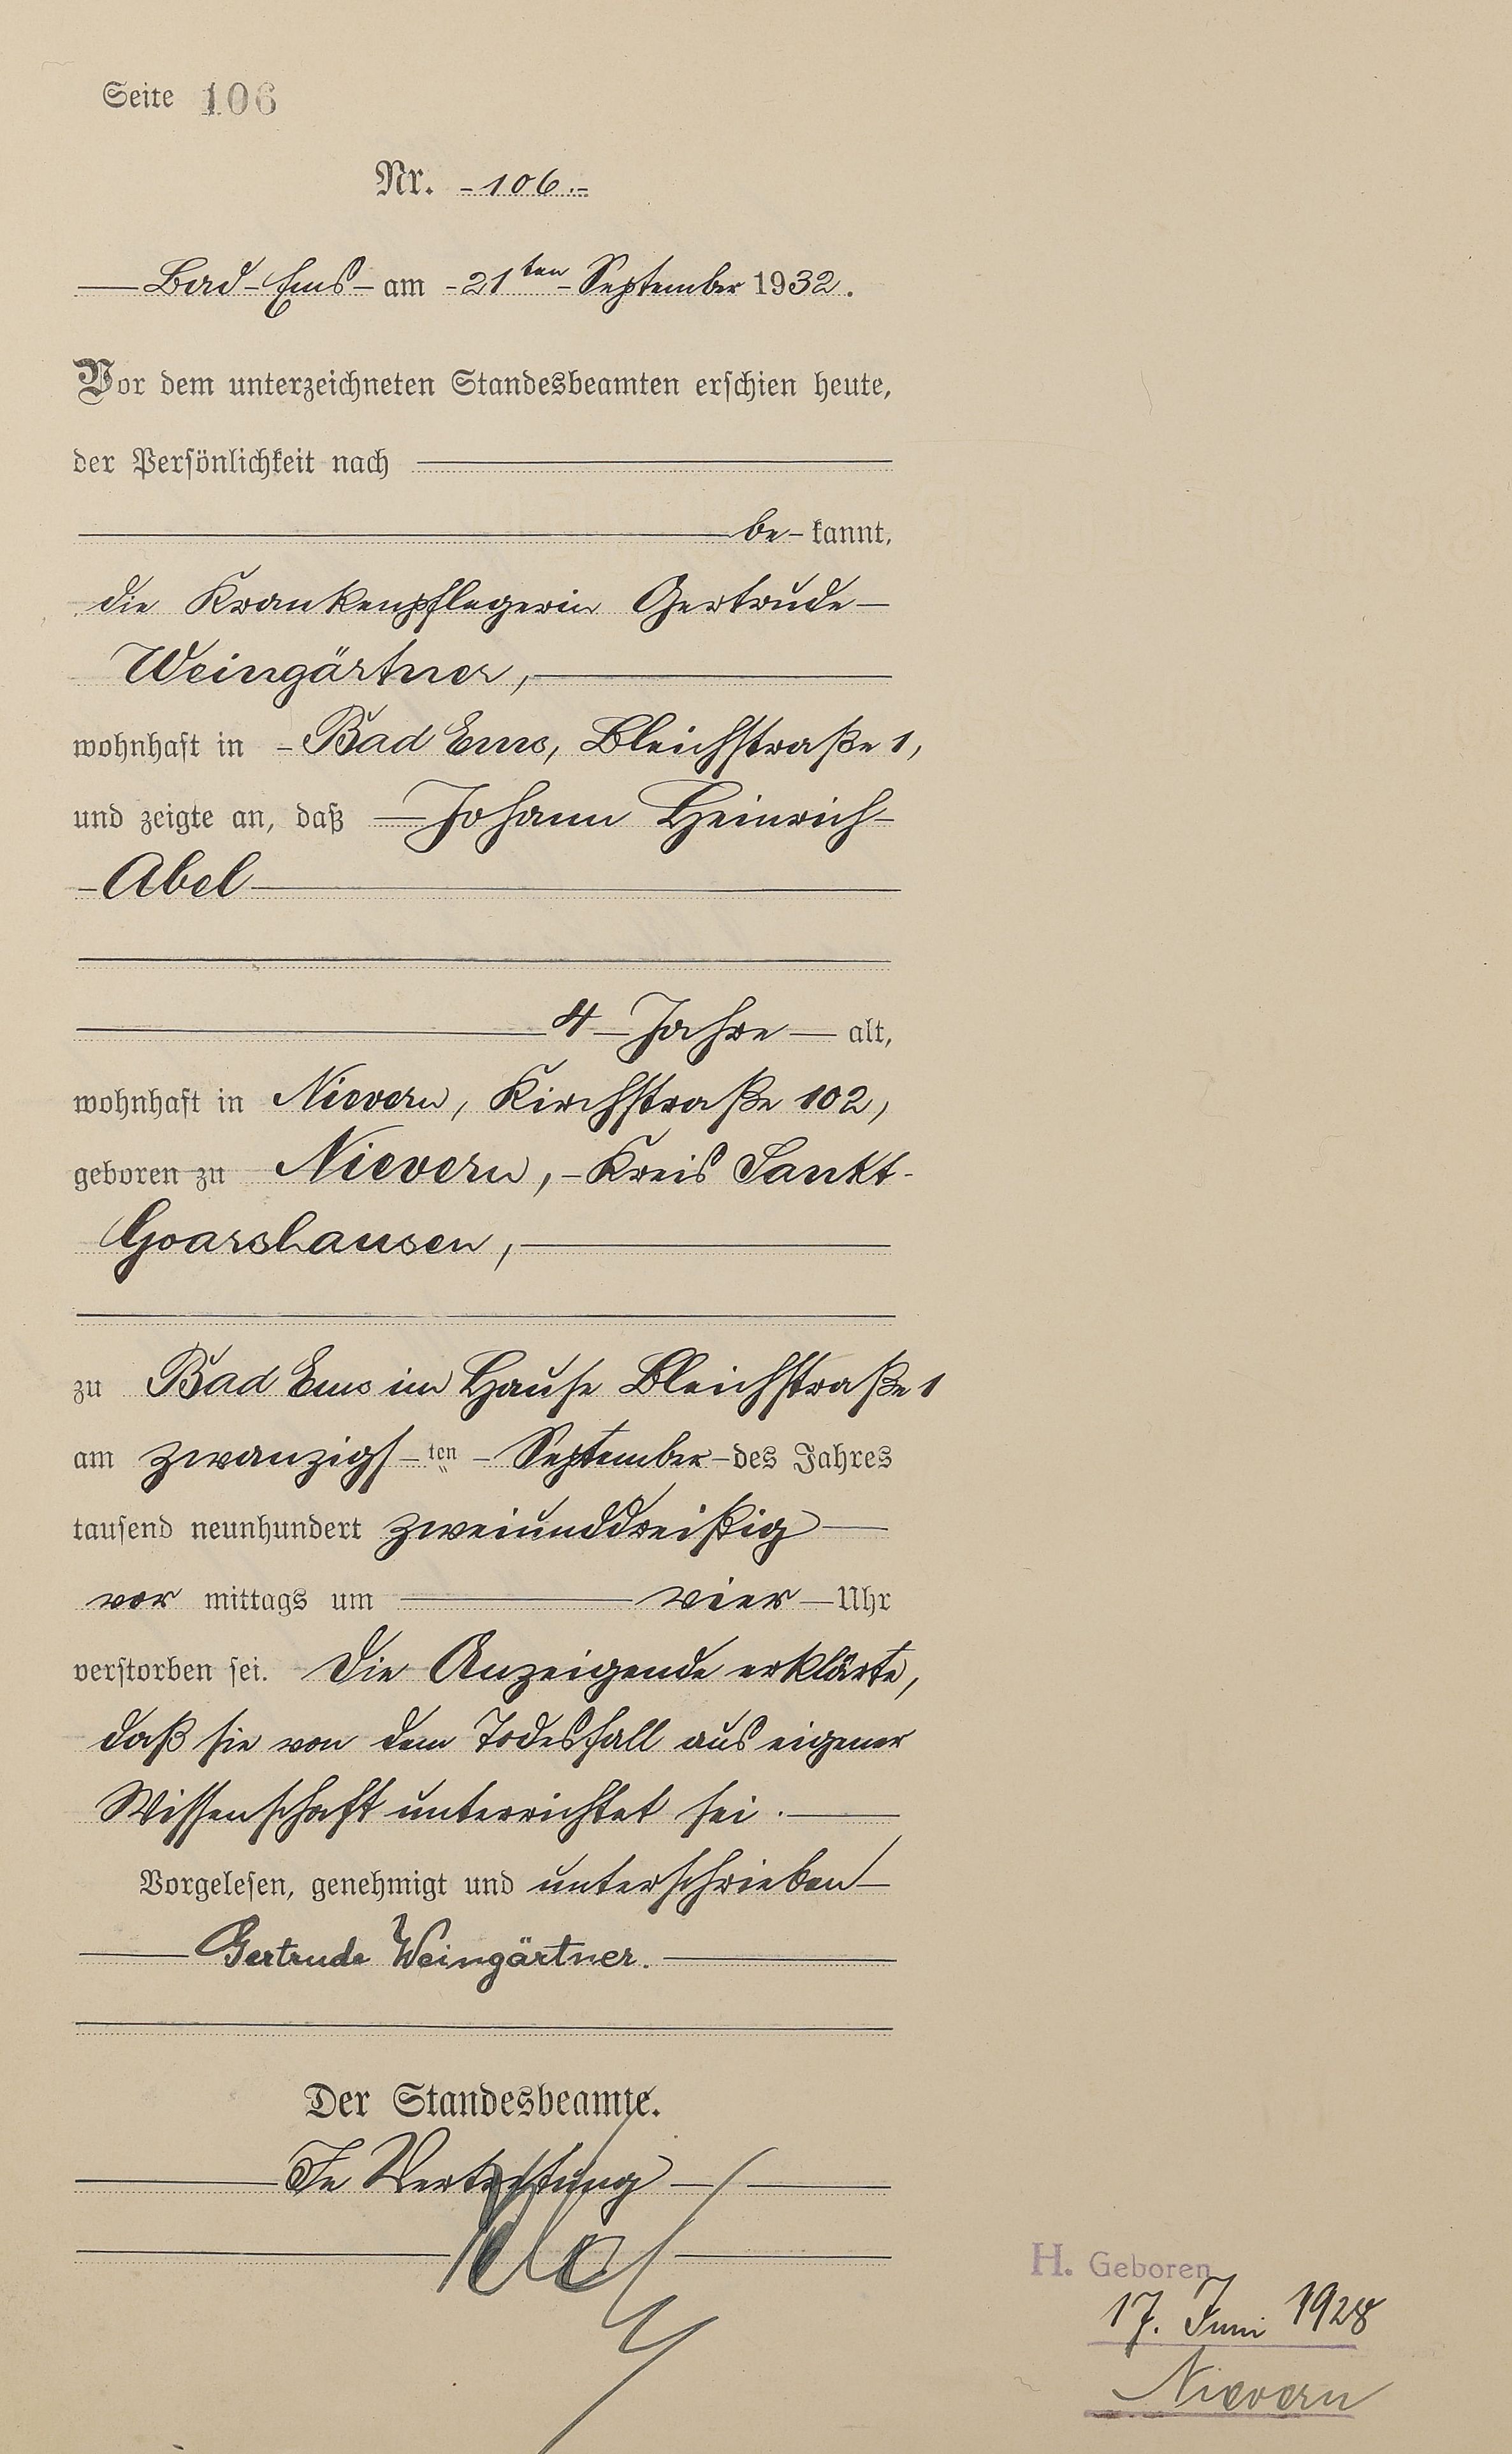 Seite 106
Nr. -106.-
Bad-Ems- am -21ten- September 1932.
Vor dem unterzeichneten Standesbeamten erschien heute,
der Persönlichkeit nach
be- kannt,
die Krankenpflegerin Gertrude-
Weingärtner,
wohnhaft in -Bad Ems, Bleichstraße 1,
und zeigte an, daß -Johann Heinrich-
-Abel-
4-Jahre- alt,
wohnhaft in Nievern, Kirchstraße 102,
geboren zu Nievern, -Kreis Sankt-
Goarshausen,
zu Bad Ems im Hause Bleichstraße 1
am zwanzigs-ten- September-des Jahres
tausend neunhundert zweiunddreißig
vor mittags um vier-Uhr
verstorben sei. Die Anzeigende erklärte,
daß sie von dem Todesfall aus eigener
Wissenschaft unterrichtet sei.
Vorgelesen, genehmigt und unterschrieben
Gertrude Weingärtner.
Der Standesbeamte.
In Vertretung
H. Geboren
17. Juni 1928
Nievern